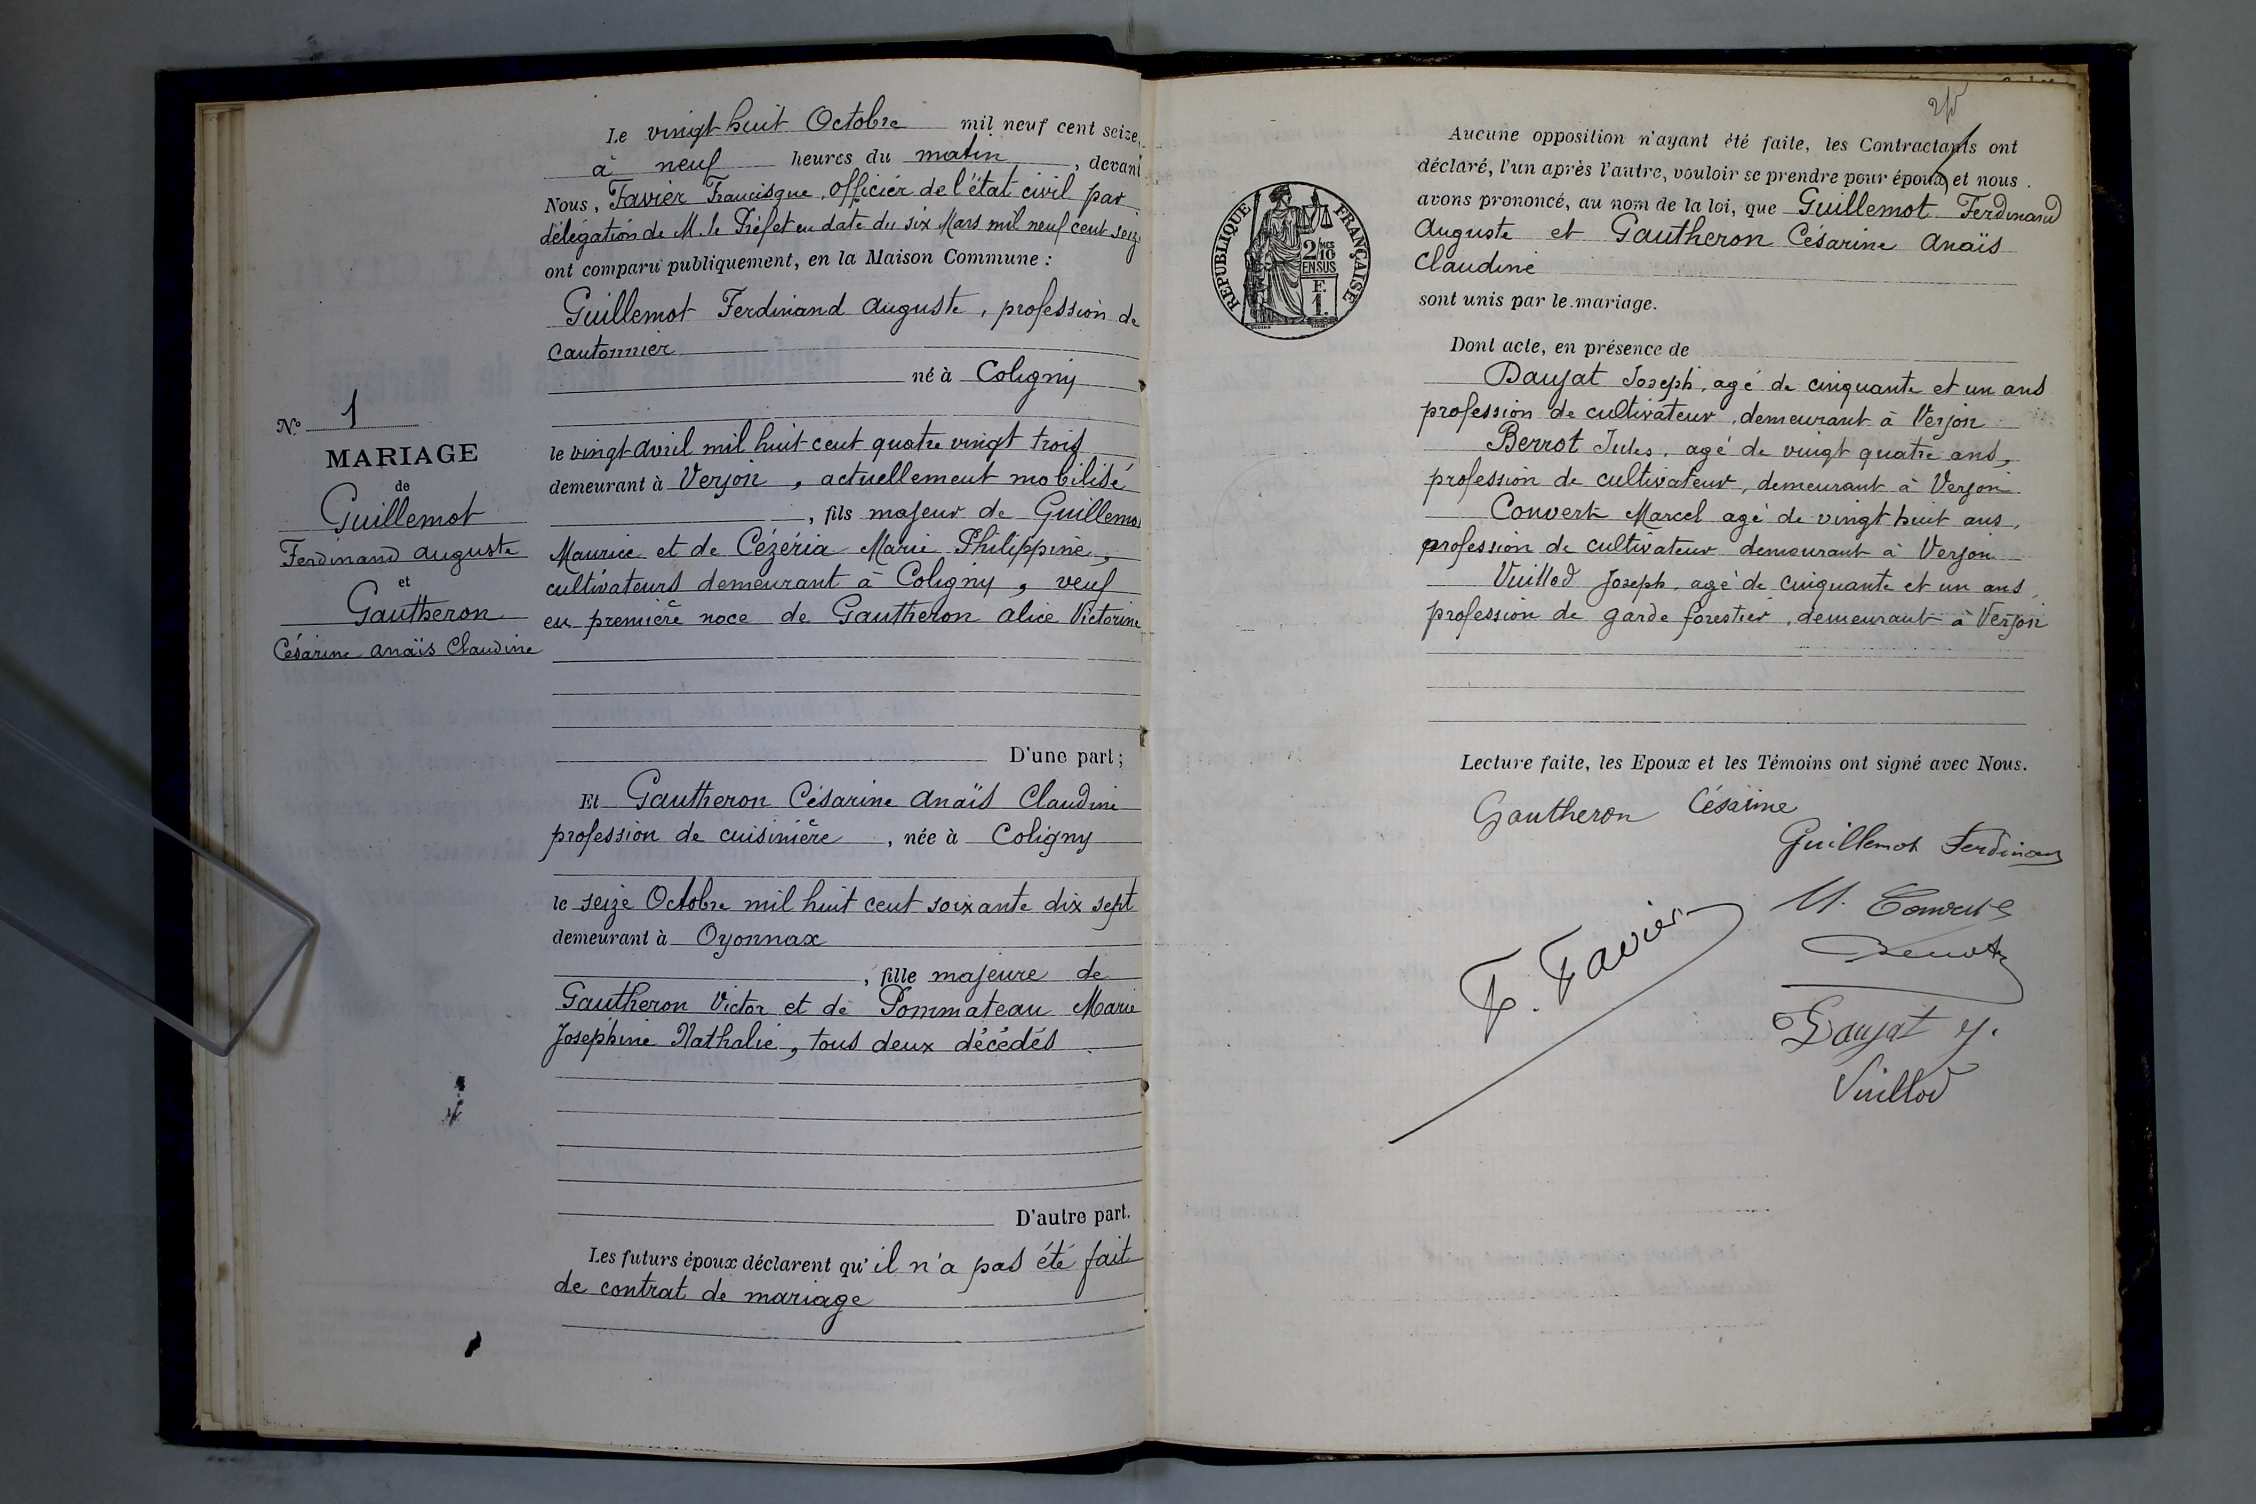 Le vingt huit Octobre mil neuf cent seize,
à neuf heures du matin, devant
Nous, Favier Francisque, officier de l'état civil par
délégation de M. le Préfet en date du six Mars mil neuf cent seize
ont comparu publiquement, en la Maison Commune :
Guillemot Ferdinand Auguste, profession de
cantonnier
né à Coligny
le vingt avril mil huit cent quatre vingt trois
demeurant à Verjon, actuellement mobilisé
, fils majeur de Guillemo
Maurice et de Cézéria Marie Philippine,
cultivateurs demeurant à Coligny, veuf
en première noce de Gautheron Alice Victorine
D'une part;
Et Gautheron Césarine Anaïs Claudine
profession de cuisinière, née à Coligny
le seize Octobre mil huit cent soixante dix sept
demeurant à Oyonnax
, fille majeure de
Gautheron Victor et de Pommateau Marie
Joséphine Nathalie, tous deux décédés
D'autre part.
Les futurs époux déclarent qu'il n'a pas été fait
de contrat de mariage
N° 1
MARIAGE
de
Guillemot
Ferdinand Auguste
et
Gautheron
Césarine Anaïs Claudine
Aucune opposition n'ayant été faite, les Contractants ont
déclaré, l'un après l'autre, vouloir se prendre pour époux, et nous
avons prononcé, au nom de la loi, que Guillemot Ferdinand
Auguste et Gautheron Césarine Anaïs
Claudine
sont unis par le mariage.
Dont acte, en présence de
Daujat Joseph, agé de cinquante et un ans
profession de cultivateur, demeurant à Verjon
Berrot Jules, agé de vingt quatre ans,
profession de cultivateur, demeurant à Verjon
Convert Marcel agé de vingt huit ans,
profession de cultivateur demeurant à Verjon
Vuillod Joseph, agé de cinquante et un ans,
profession de garde forestier, demeurant à Verjon
Lecture faite, les Epoux et les Témoins ont signé avec Nous.
Gautheron Césarine
Guillemot Ferdinand
M. Convert
Berrot
F. Favier
Daujat J.
Vuillod
RÉPUBLIQUE FRANÇAISE
2/10mes
EN SUS
F.
1.